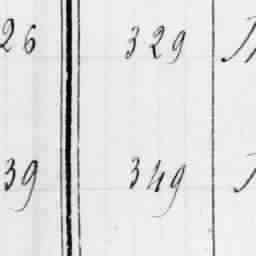 26 329
39 349